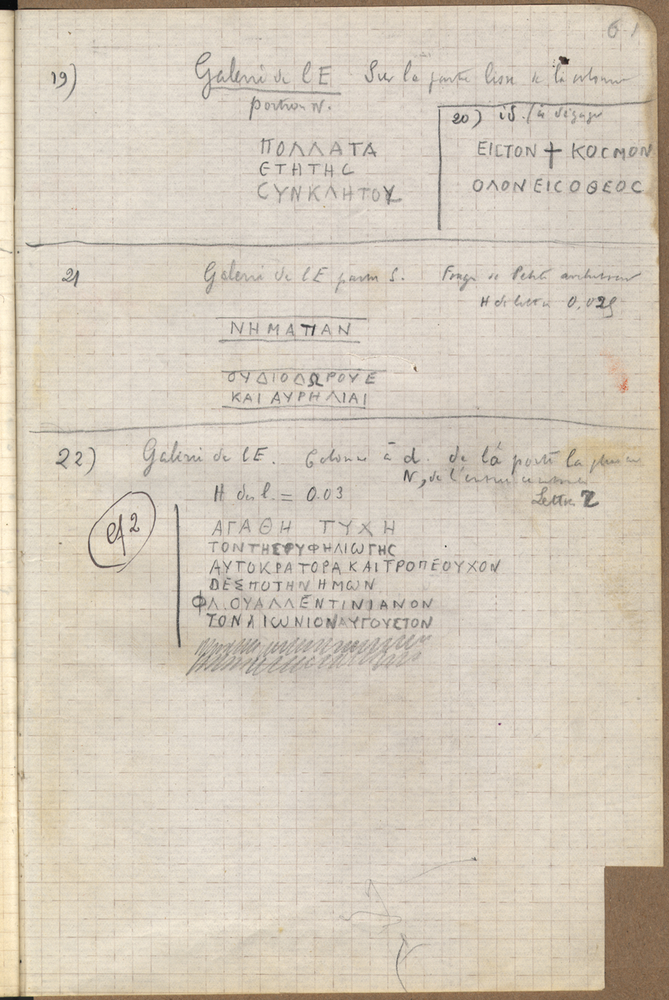 61
19) Galerie de l'E Sur la partie lisse de la colonne
portion N.
ΠΟΛΛΑΤΑ
ЄΤΗΤΗϹ
ϹΥΝΚΛΗΤΟΥ
20) id. (à dégager
ΕΙϹΤΟΝ ✝ ΚΟϹΜΟΝ
ΟΛΟΝΕΙϹΟΘΕΟϹ
21 Galerie de l'E partie S.
H de lettre 0,029
ΝΗΜΑΠΑΝ
ΟΥΔΙΟΔΩΡΟΥΕ
ΚΑΙΑΥΡΗΛΙΑΙ
22) Galerie de l'E. Colonne à d. de la porte la plus au
N, de l'entrée
Lettre Z
H des l. = 0.03
cf 2
ΑΓΑΘΗ ΤΥΧΗ
ΤΟΝΤΗϹΥΦΗΛΙΩΓΗϹ
ΑΥΤΟΚΡΑΤΟΡΑΚΑΙΤΡΟΠΕΟΥΧΟΝ
ΔΕΣΠΟΤΗΝΗΜΩΝ
ΦΛ.ΟΥΑΛΛΕΝΤΙΝΙΑΝΟΝ
ΤΟΝΑΙΩΝΙΟΝΑΥΓΟΥΣΤΟΝ